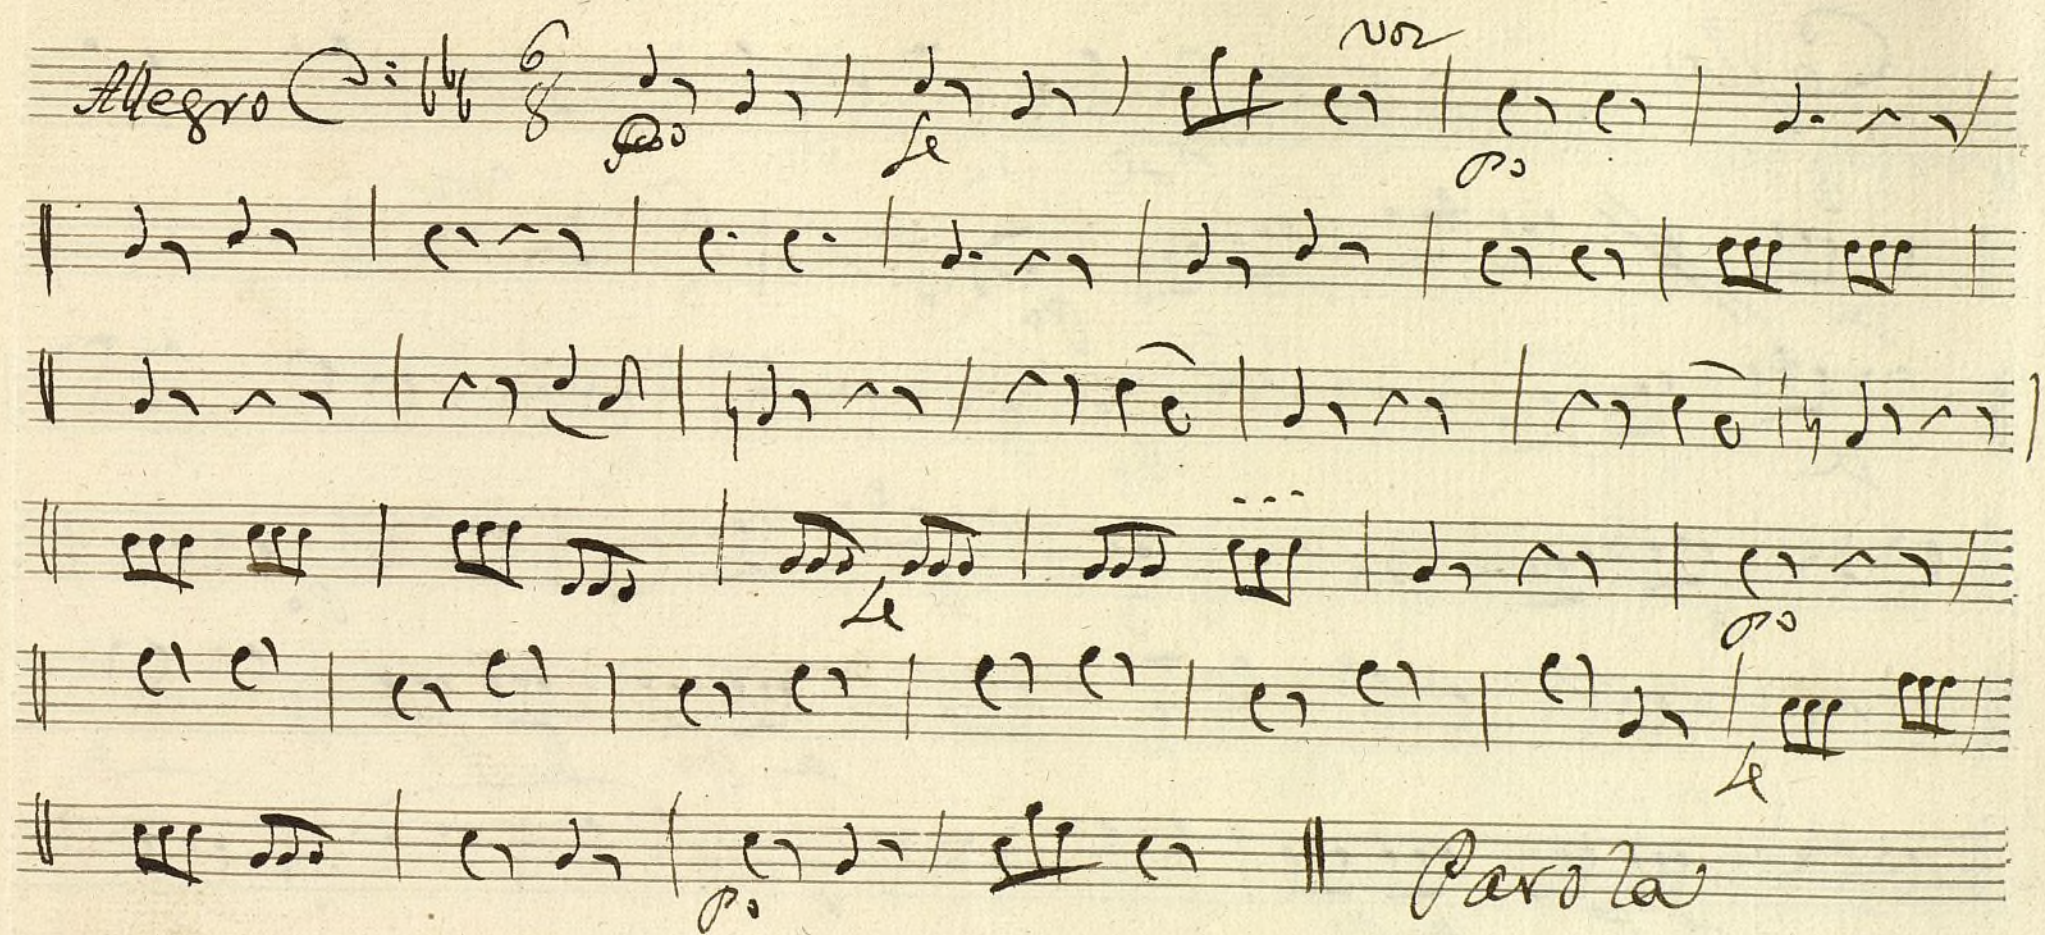 voz
Allegro 6/8
po fe po
fe po
fe
po Parola